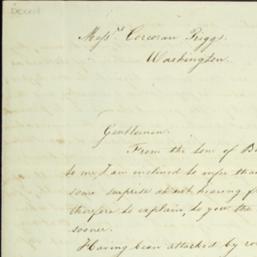 Mess.rs Corcoran Riggs.
Washington.
Gentlemen.
From the tone of B
to me, I am inclined to infer tha
some surprise at not hearing f
therefore to explain, to you the
sooner.
Having been attacked by